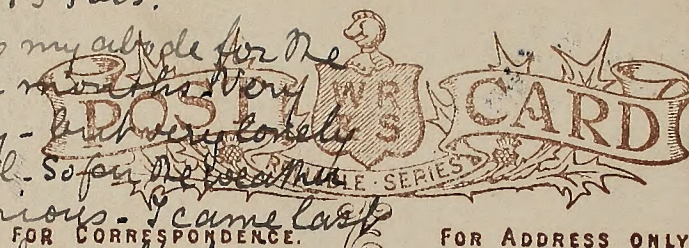 my abode for the
months. Very
- but very lonely
So far the weather
- I came last
POST CARD
WR
&S
RELIABLE · SERIES
FOR CORRESPONDENCE. FOR ADDRESS ONLY